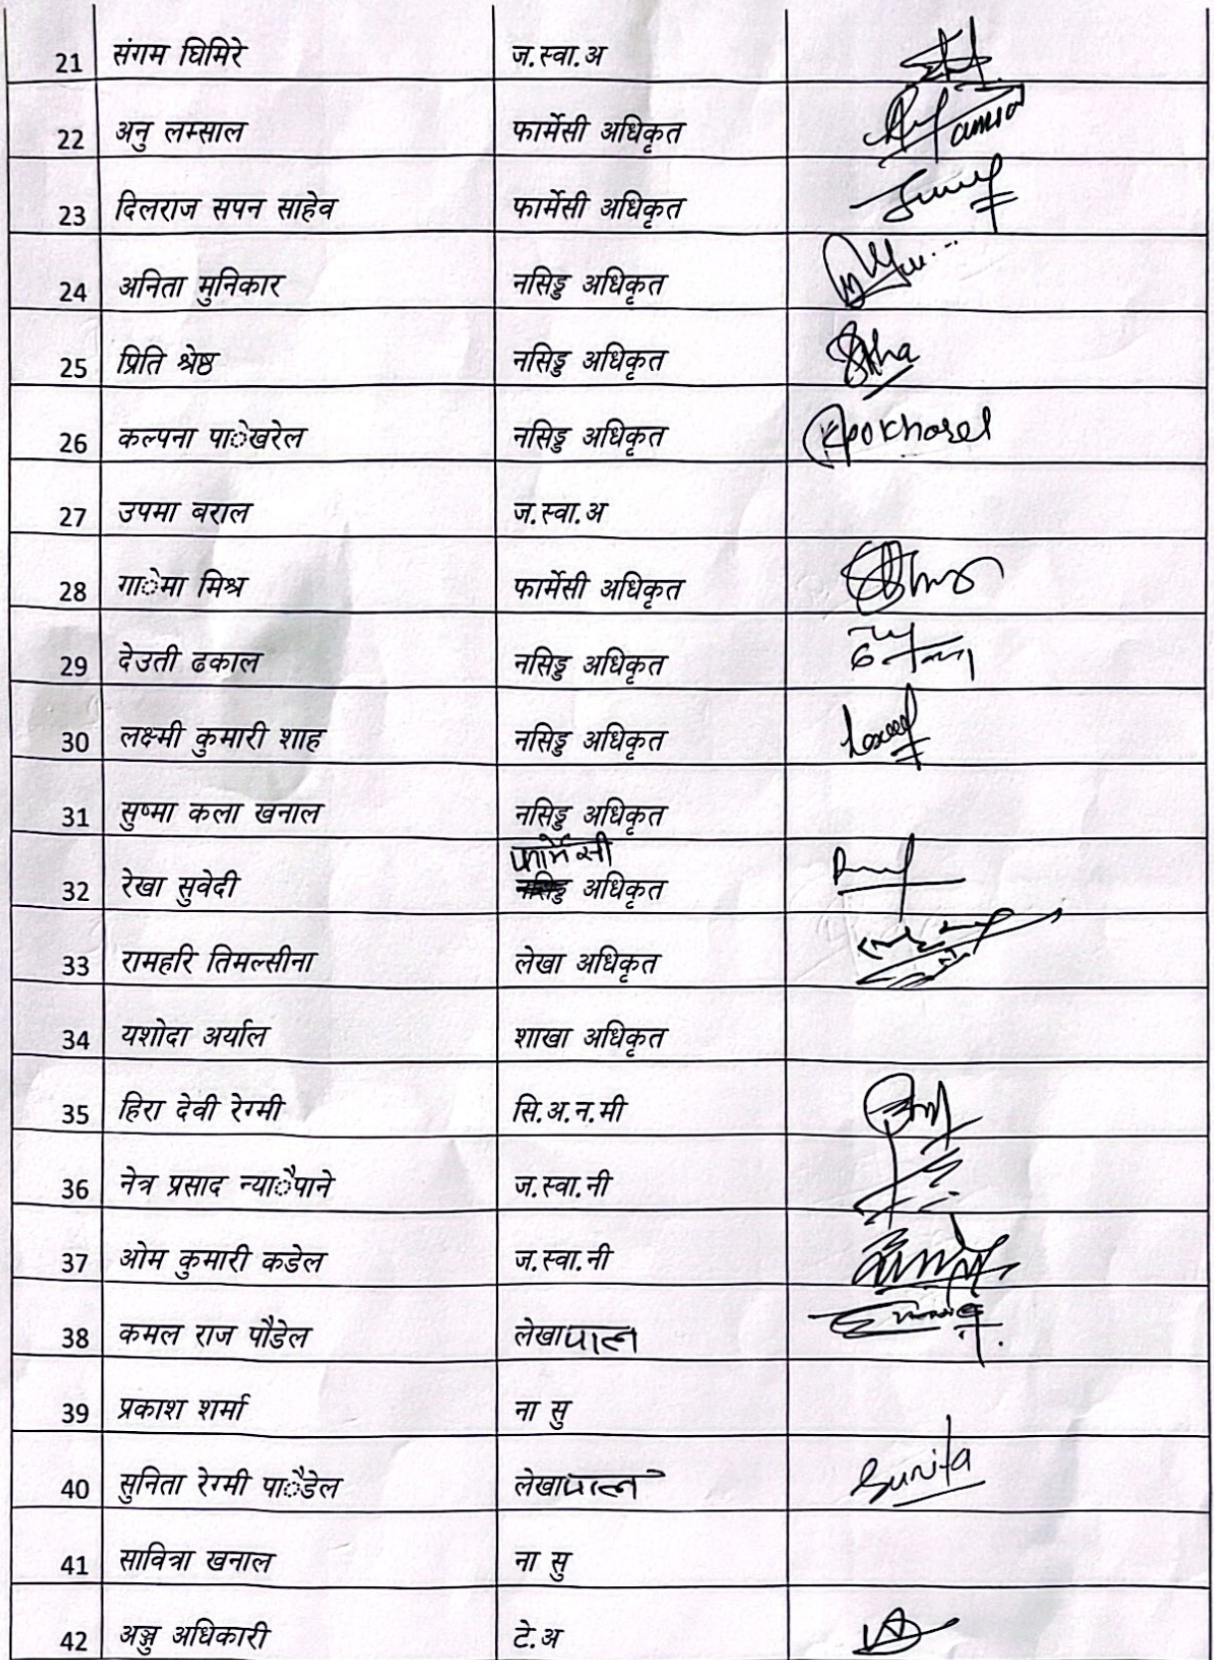 21 संगम घिमिरे ज.स्वा.अ
22 अनु लम्साल फार्मेसी अधिकृत
23 दिलराज सपन साहेव फार्मेसी अधिकृत
24 अनिता मुनिकार नसिड्ड अधिकृत
25 प्रिति श्रेष्ठ नसिड्ड अधिकृत
26 कल्पना पाेखरेल नसिड्ड अधिकृत Kpokharel
27 उपमा बराल ज.स्वा.अ
28 गाेमा मिश्र फार्मेसी अधिकृत
29 देउती ढकाल नसिड्ड अधिकृत
30 लक्ष्मी कुमारी शाह नसिड्ड अधिकृत
31 सुष्मा कला खनाल नसिड्ड अधिकृत
फार्मेसी
32 रेखा सुवेदी नसिड्ड अधिकृत
33 रामहरि तिमल्सीना लेखा अधिकृत
34 यशोदा अर्याल शाखा अधिकृत
35 हिरा देवी रेग्मी सि.अ.न.मी
36 नेत्र प्रसाद न्याैपाने ज.स्वा.नी
37 ओम कुमारी कडेल ज.स्वा.नी
38 कमल राज पौडेल लेखापाल
39 प्रकाश शर्मा ना सु
40 सुनिता रेग्मी पाैडेल लेखापाल Sunita
41 सावित्रा खनाल ना सु
42 अञ्जु अधिकारी टे.अ